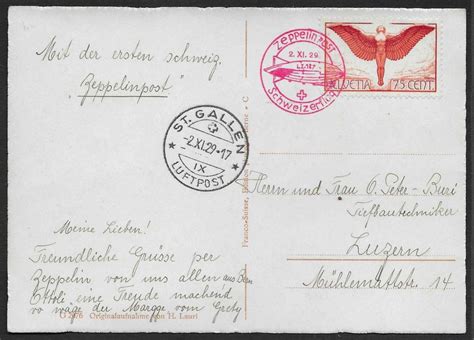 Mit der ersten schweiz.
„Zeppelinpost"
Zeppelinpost
2. XI. 29
LZ127
Schweizerflug
HELVETIA 75 CENT.
ST. GALLEN
-2.XI.29-17
IX
LUFTPOST
Herrn und Frau O. Peter-Buri
Tiefbautechniker
Luzern
Mühlemattstr. 14
Meine Lieben!
Freundliche Grüsse per
Zeppelin von uns allen aus
Ottoli eine Freude machend
so wäge der Margge vom Grety
Originalaufnahme von H. Lauri
Franco-Suisse,